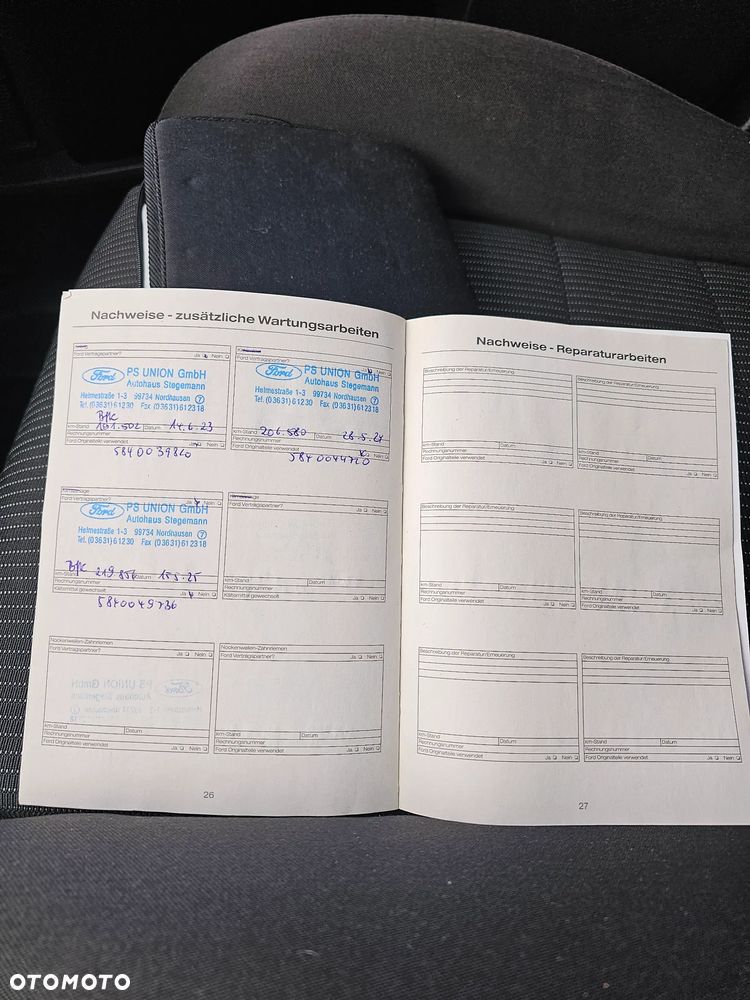 Nachweise - zusätzliche Wartungsarbeiten
Ford Vertragspartner? Ja Nein
Ford PS UNION GmbH
Autohaus Stegemann
Helmestraße 1-3 99734 Nordhausen 7
Tel. (03631) 61230 Fax (03631) 612318
km-Stand Datum 14.6.23
Rechnungsnummer
Ford Originalteile verwendet Ja Nein
5840039820
Ford Vertragspartner? Nein
Ford PS UNION GmbH
Autohaus Stegemann
Helmestraße 1-3 99734 Nordhausen 7
Tel. (03631) 61230 Fax (03631) 612318
km-Stand 206.580 Datum
Rechnungsnummer
Ford Originalteile verwendet Ja Nein
5840044720
Ford Vertragspartner? Ja Nein
Ford PS UNION GmbH
Autohaus Stegemann
Helmestraße 1-3 99734 Nordhausen 7
Tel. (03631) 61230 Fax (03631) 612318
km-Stand Datum
Rechnungsnummer
Kältemittel gewechselt Ja Nein
5840049736
Ford Vertragspartner? Ja Nein
km-Stand Datum
Rechnungsnummer
Kältemittel gewechselt Ja Nein
Nockenwellen-Zahnriemen
Ford Vertragspartner? Ja Nein
km-Stand Datum
Rechnungsnummer
Ford Originalteile verwendet Ja Nein
Nockenwellen-Zahnriemen
Ford Vertragspartner? Ja Nein
km-Stand Datum
Rechnungsnummer
Ford Originalteile verwendet Ja Nein
26
Nachweise - Reparaturarbeiten
Beschreibung der Reparatur/Erneuerung
km-Stand Datum
Rechnungsnummer
Ford Originalteile verwendet Ja Nein
Beschreibung der Reparatur/Erneuerung
km-Stand Datum
Rechnungsnummer
Ford Originalteile verwendet Ja Nein
Beschreibung der Reparatur/Erneuerung
km-Stand Datum
Rechnungsnummer
Ford Originalteile verwendet Ja Nein
Beschreibung der Reparatur/Erneuerung
km-Stand Datum
Rechnungsnummer
Ford Originalteile verwendet Ja Nein
Beschreibung der Reparatur/Erneuerung
km-Stand Datum
Rechnungsnummer
Ford Originalteile verwendet Ja Nein
Beschreibung der Reparatur/Erneuerung
km-Stand Datum
Rechnungsnummer
Ford Originalteile verwendet Ja Nein
27
OTOMOTO